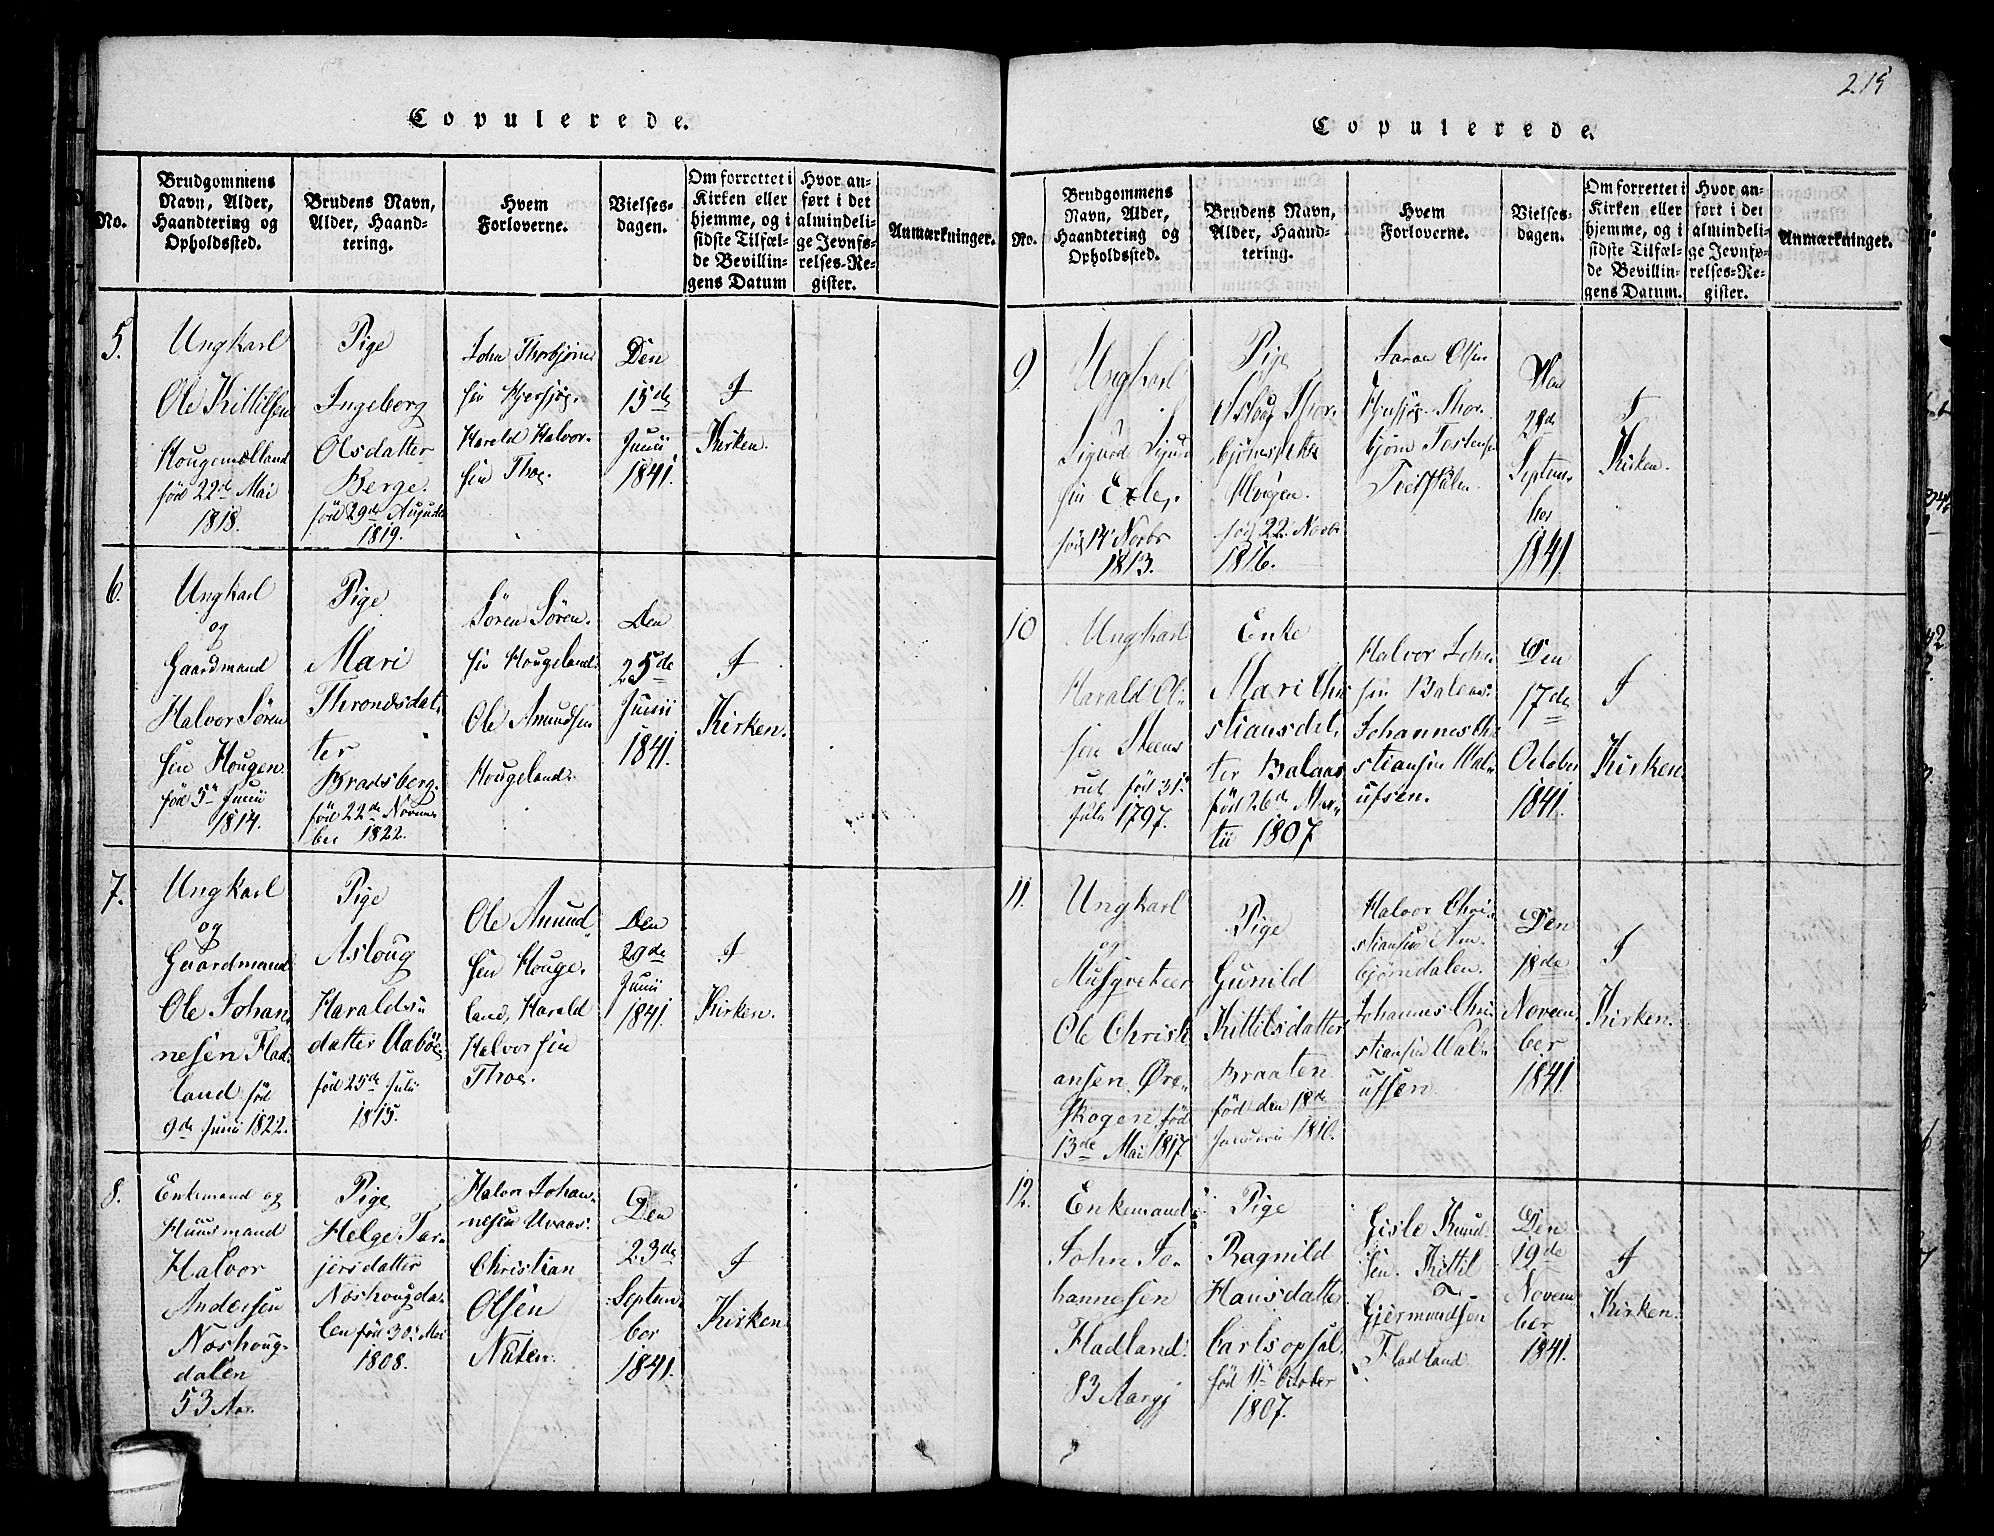 Copulerede.
No.
Brudgommens
Navn, Alder,
Haandtering og
Opholdssted.
Brudens Navn,
Alder, Haand-
tering.
Hvem
Forloverne.
Vielses-
dagen.
Om forrettet i
Kirken eller
hjemme, og i
sidste Tilfæl-
de Bevillin-
gens Datum
Hvor an-
ført i det
almindeli-
ge Jevnfø-
relses-Re-
gister.
Anmærkninger.
5.
Ungkarl
Ole Kittilsen
Hougemælland
fød 22de Mai
1818.
Pige
Ingeborg
Olsdatter
Berge.
fød 29de Augusti
1819.
John Thorbjørn
sen
Harald Halvor-
sen Thoe.
Den
15de
Junii
1841.
I
Kirken.
6.
Ungkarl
og
Gaardmand
Halvor Søren
sen Hougen.
fød 5te Junii
1814.
Pige
Mari
Throndsdat-
ter
Bradsberg.
fød 22de Novem
ber 1822.
Søren Søren-
sen Hougeland.
Ole Amundsen
Hougeland.
Den
25de
Junii
1841.
I
Kirken.
7.
Ungkarl
og
Gaardmand
Ole Johan
nesen Flad-
land fød
9de Junii 1822.
Pige
Asloug
Haralds-
datter Aabøe
fød 25de Julii
1815.
Ole Amund
sen Houge-
land, Harald
Halvorsen
Thoe.
Den
29de
Junii
1841.
I
Kirken.
8.
Enkemand og
Huusmand
Halvor
Andersen
Noshoug-
dalen
53 Aar.
Pige
Helge Tar-
jersdatter
Noshougda-
len fød 30 Mai
1808.
Halvor Johan-
nesen Uvaas.
Christian
Olsen
Nuten.
Den
23de
Septem
ber
1841.
I
Kirken.
215
Copulerede.
No.
Brudgommens
Navn, Alder,
Haandtering og
Opholdssted.
Brudens Navn,
Alder, Haand-
tering.
Hvem
Forloverne.
Vielses-
dagen.
Om forrettet i
Kirken eller
hjemme, og i
sidste Tilfæl-
de Bevillin-
gens Datum.
Hvor an-
ført i det
almindeli-
ge Jevnfø-
relses-Re-
gister.
Anmærkninger.
9.
Ungkarl
Sigurd
sen
fød 14 Novbr
1813.
Pige
Asloug Thor-
Hougen.
fød 22 Novbr
1816.
Olsen
Thor-
bjørn
Den
Septem
ber
1841.
I
Kirken.
10
Ungkarl
Harald Ol-
sen Steens
rud fød 31
Julii 1797.
Enke
Mari Chri
stiansdat-
ter Balaas
fød 26de Mar-
tii 1807
Halvor John
sen Balaas.
Johannes Chri
stiansen Wal-
ufsen.
Den
17de
October
1841.
I
Kirken
11.
Ungkarl
og
Musqveteer
Ole Christi
ansen Øre-
skogen, fød
13de Mai 1817
Pige
Gunild
Kittilsdatter
Braaten
fød den 18de
Januarii 1810.
Halvor Chri
stiansen Am-
bjørndalen.
Johannes Chri
stiansen Wal-
ufsen.
Den
18de
Novem
ber
1841
I
Kirken.
12.
Enkemand
John Jo-
hannesen
Fladland.
83 Aar
Pige
Ragnild
Hansdatter
Carlsopsal
fød 11te October
1807.
Gisle Knud
sen. Kittil
Gjermundsen
Fladland.
Den
19de
Novem
ber
1841.
I
Kirken.